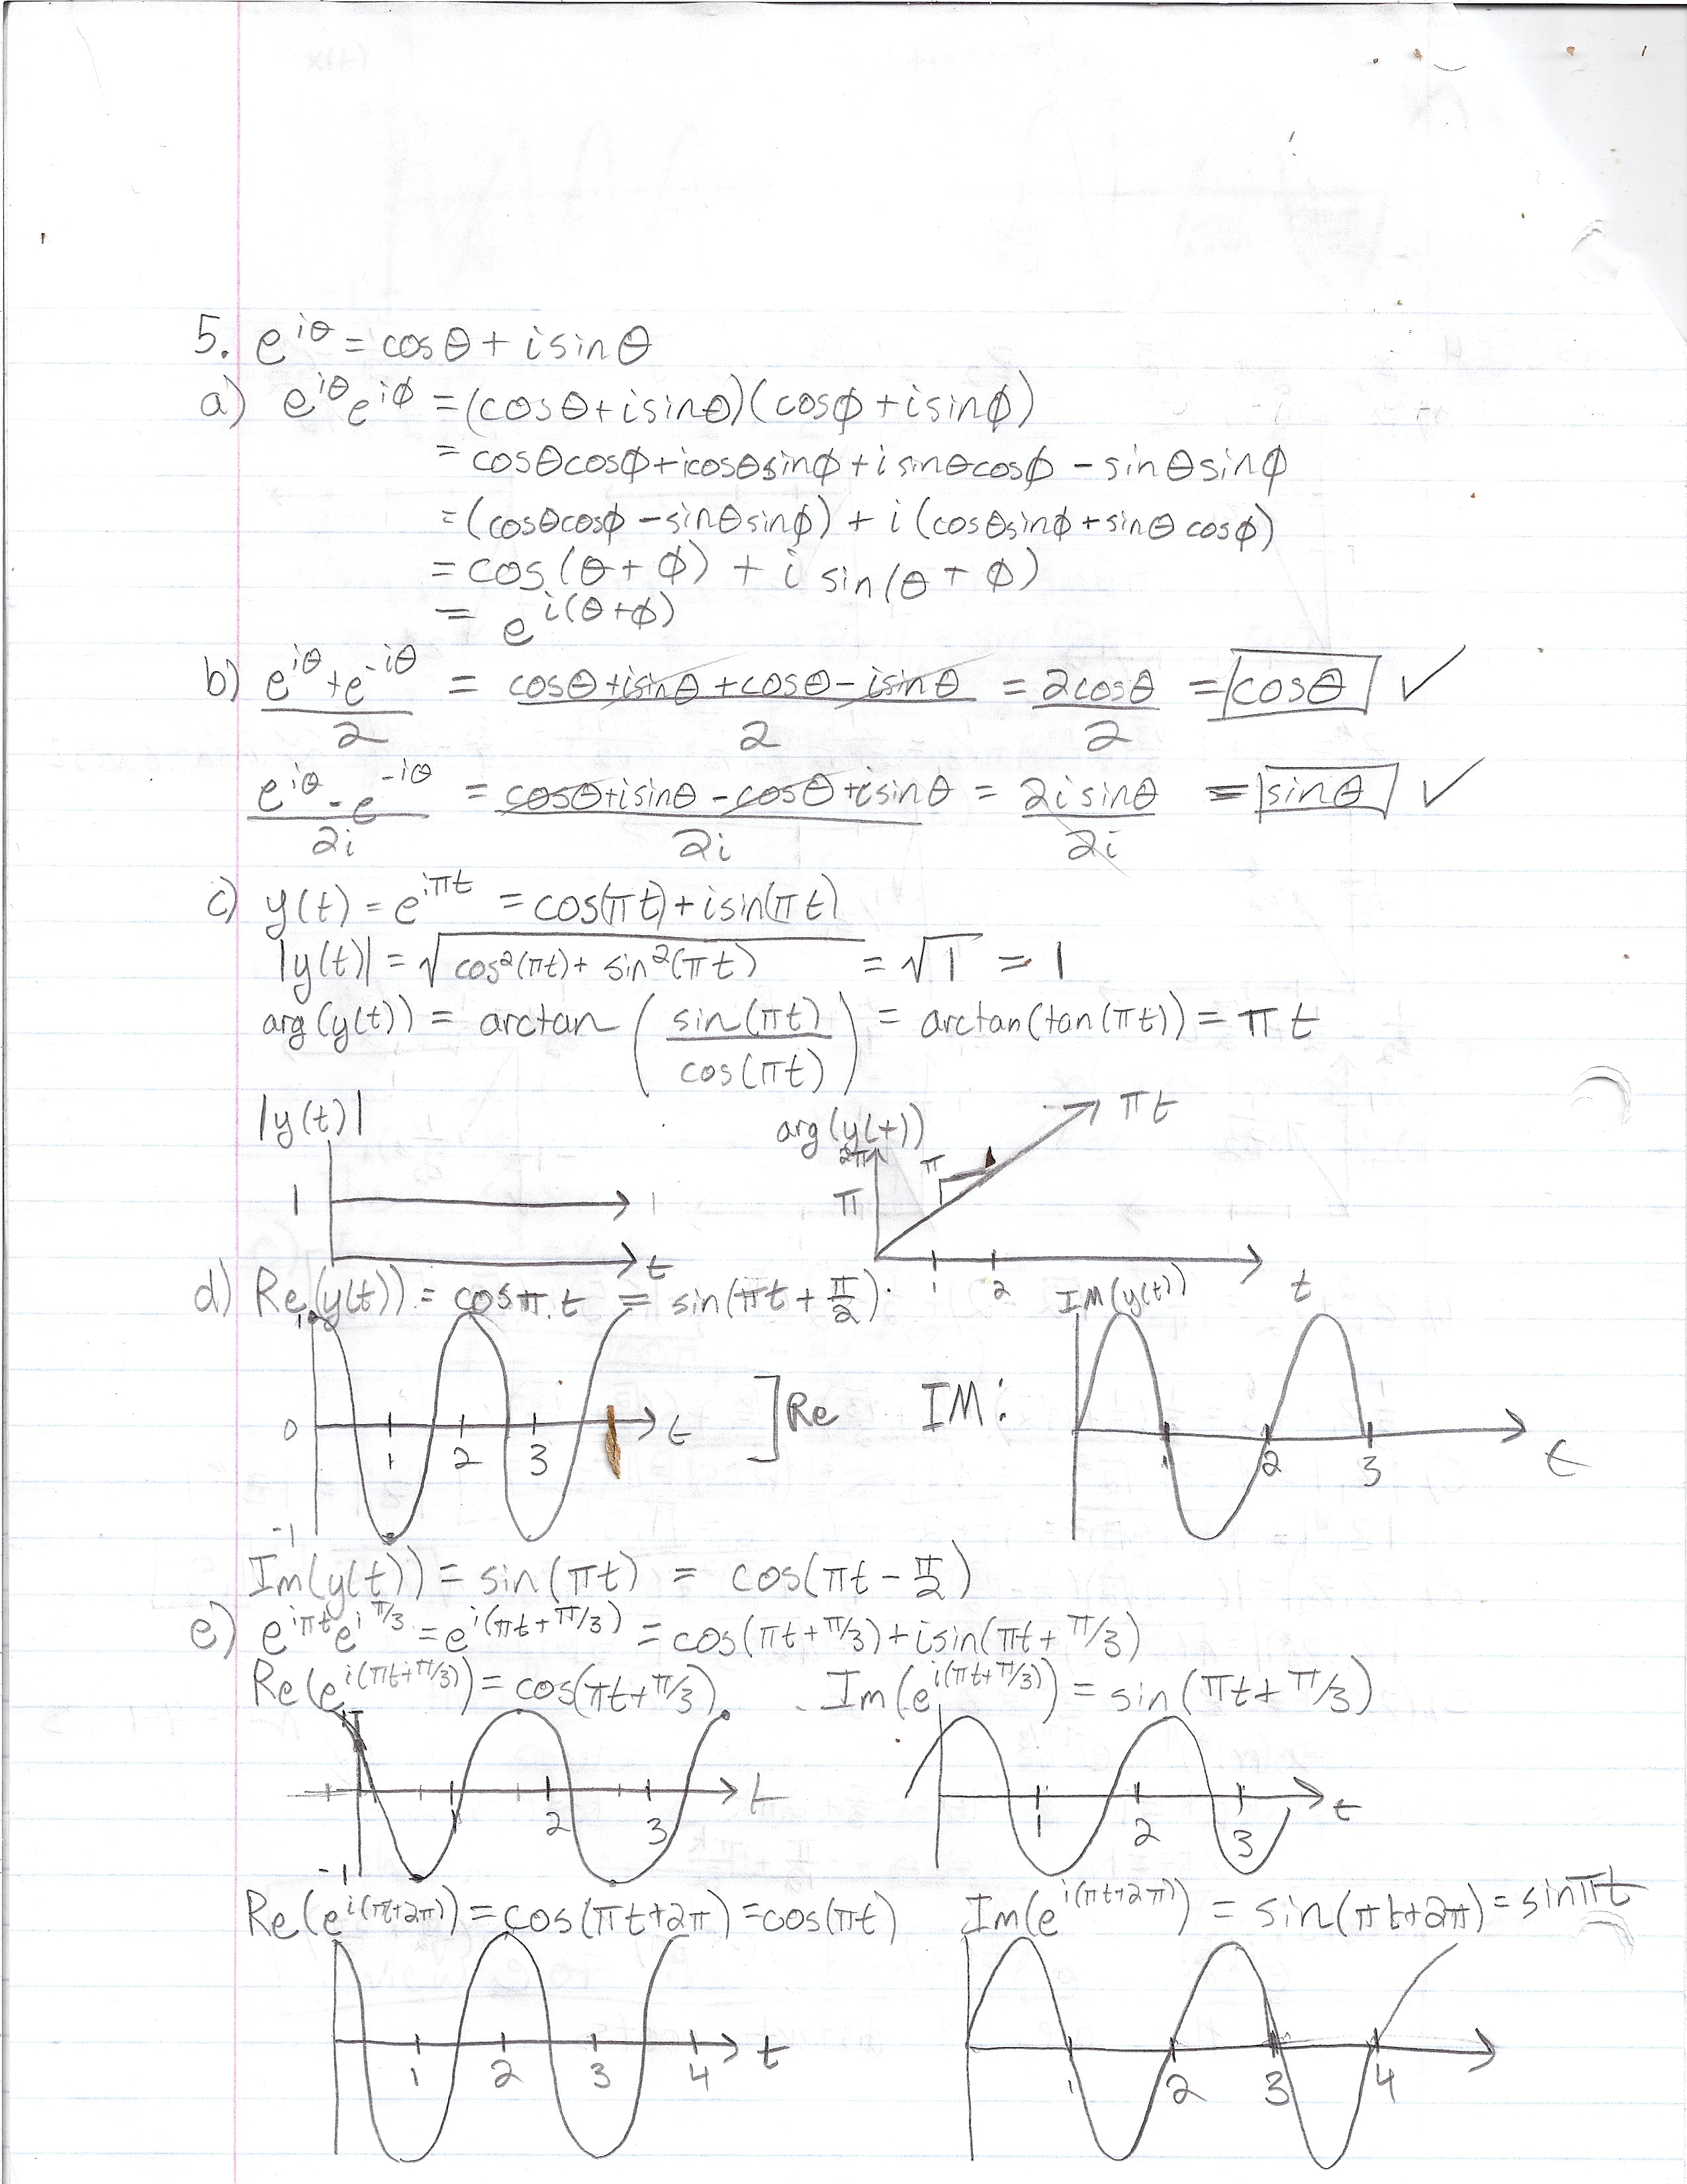 5. e^{iθ} = cosθ + i sinθ
a) e^{iθ}e^{iϕ} = (cosθ+isinθ)(cosϕ+isinϕ)
= cosθcosϕ+icosθsinϕ+isinθcosϕ - sinθsinϕ
= (cosθcosϕ - sinθsinϕ) + i(cosθsinϕ + sinθcosϕ)
= cos(θ+ϕ) + i sin(θ+ϕ)
= e^{i(θ+ϕ)}
b) (e^{iθ}+e^{-iθ})/2 = (cosθ+isinθ+cosθ-isinθ)/2 = 2cosθ/2 = cosθ ✓
(e^{iθ}-e^{-iθ})/2i = (cosθ+isinθ-cosθ+isinθ)/2i = 2i sinθ/2i = sinθ ✓
c) y(t) = e^{iπt} = cos(πt)+isin(πt)
|y(t)| = √(cos²(πt)+sin²(πt)) = √1 = 1
arg(y(t)) = arctan(sin(πt)/cos(πt)) = arctan(tan(πt)) = πt
|y(t)| arg(y(t)) πt
2π π
1 1 π
t 1 2 t
d) Re(y(t)) = cosπt = sin(πt+π/2). IM(y(t))
1
0 1 2 3 t ]Re IM: 1 2 3 t
-1
Im(y(t)) = sin(πt) = cos(πt-π/2)
e) e^{iπt}e^{iπ/3} = e^{i(πt+π/3)} = cos(πt+π/3)+isin(πt+π/3)
Re(e^{i(πt+π/3)}) = cos(πt+π/3). Im(e^{i(πt+π/3)}) = sin(πt+π/3)
1
1 2 3 t 1 2 3 t
-1
Re(e^{i(πt+2π)}) = cos(πt+2π) = cos(πt) Im(e^{i(πt+2π)}) = sin(πt+2π) = sinπt
1 2 3 4 t 1 2 3 4